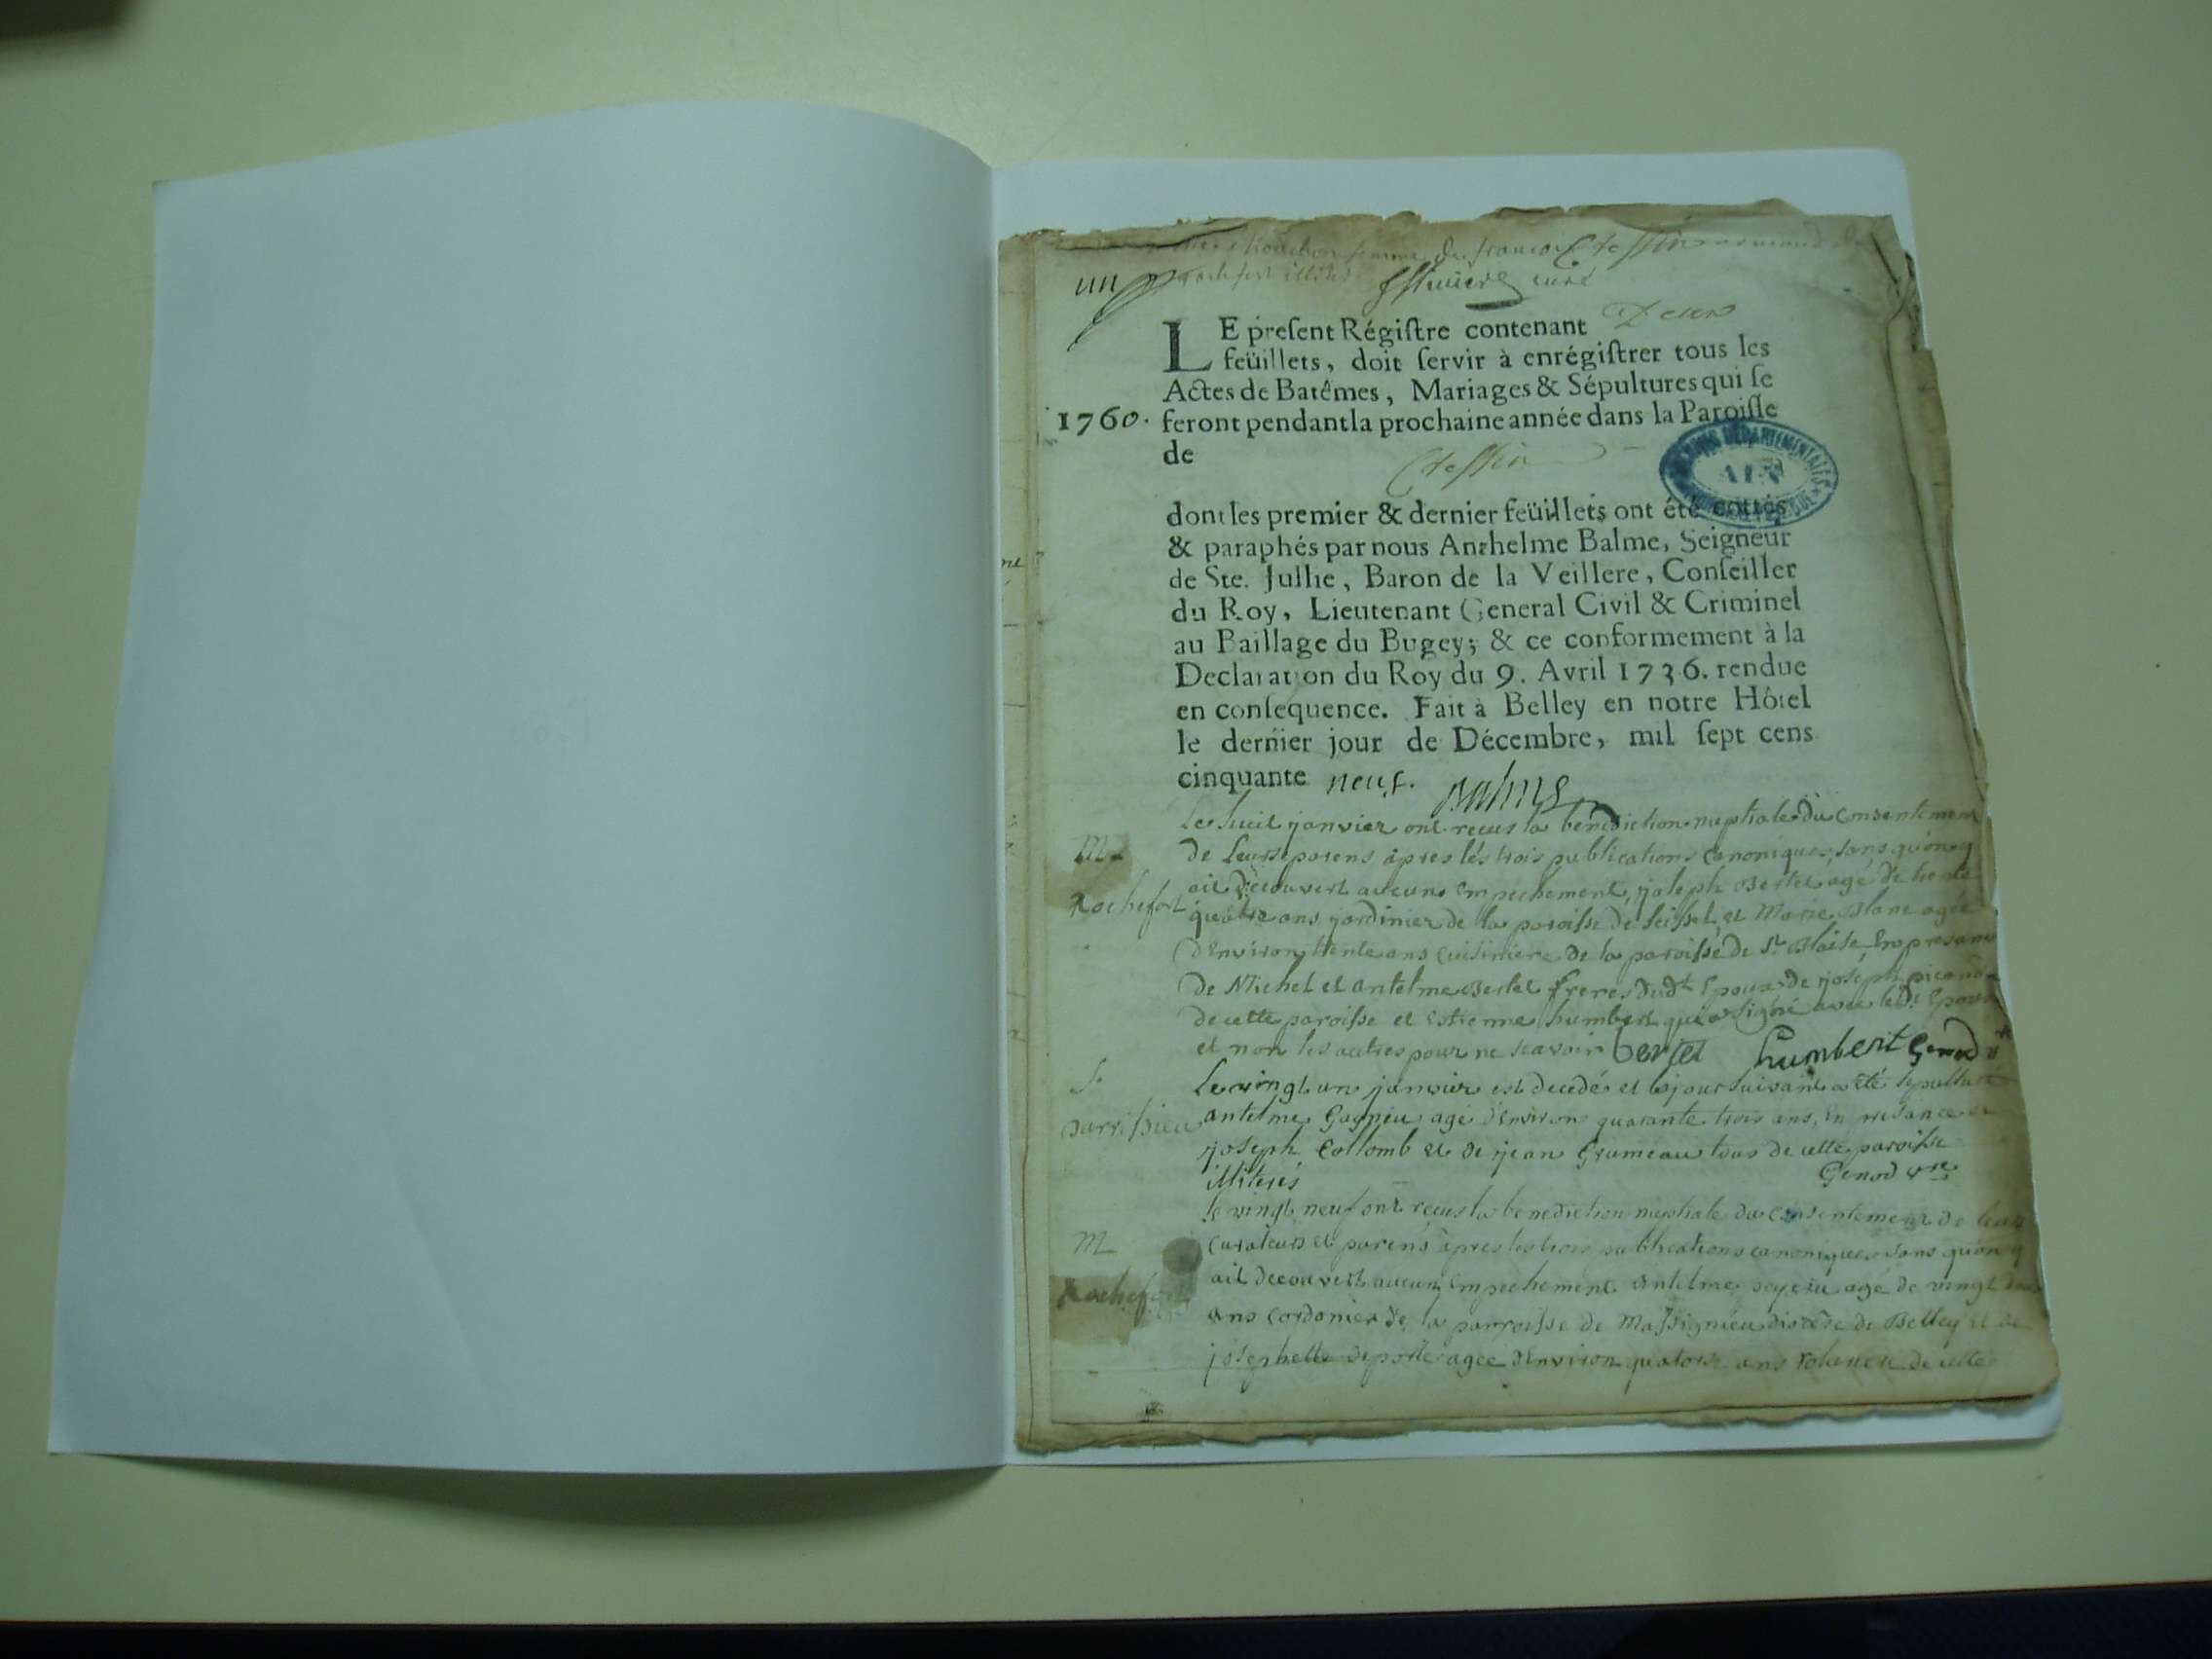 femme de françois
un
curé
LE present Régistre contenant
feüillets, doit servir à enrégistrer tous les
Actes de Batêmes, Mariages & Sépultures qui se
1760. feront pendant la prochaine année dans la Paroisse
de
dont les premier & dernier feüillets ont été cottés
& paraphés par nous Anthelme Balme, Seigneur
de Ste. Jullie, Baron de la Veillere, Conseiller
du Roy, Lieutenant General Civil & Criminel
au Baillage du Bugey; & ce conformement à la
Declaration du Roy du 9. Avril 1736. rendue
en consequence. Fait à Belley en notre Hôtel
le dernier jour de Décembre, mil sept cens
cinquante neuf. Balme
DEPARTEMENTALES
AIN
Le huit janvier ont recus la benediction nuptiale du consentement
M de leurs parens apres les trois publications canoniques, sans qu'on y
ait decouvert aucuns empechement, joseph Bertet agé de trente
Rochefort quatre ans jardinier de la paroisse de seissel, et Marie Blanc agée
d'environ trente ans cuisiniere de la paroisse de St Blaise, en presance
de Michel et antelme Bertet freres dudt Epoux de joseph
de cette paroisse et Estienne humbert qui a signé avec ledt Epoux
et non les autres pour ne scavoir bertet humbert Genod
S. Le vingt un janvier est decedé et le jour suivant a eté sepulturé
antelme Gagnieu agé d'environ quarante trois ans, en presance de
joseph Collomb et de jean Grumeau tous de cette paroisse
illiterés Genod vre
le vingt neuf ont recus la benediction nuptiale du consentement de leurs
M curateurs et parens apres les trois publications canoniques sans qu'on y
ait decouvert aucun empechement antelme agé de vingt
Rochefort ans cordonier de la parroisse de Massignieu diocése de Belley et
josephette agée d'environ quatorze ans de cette